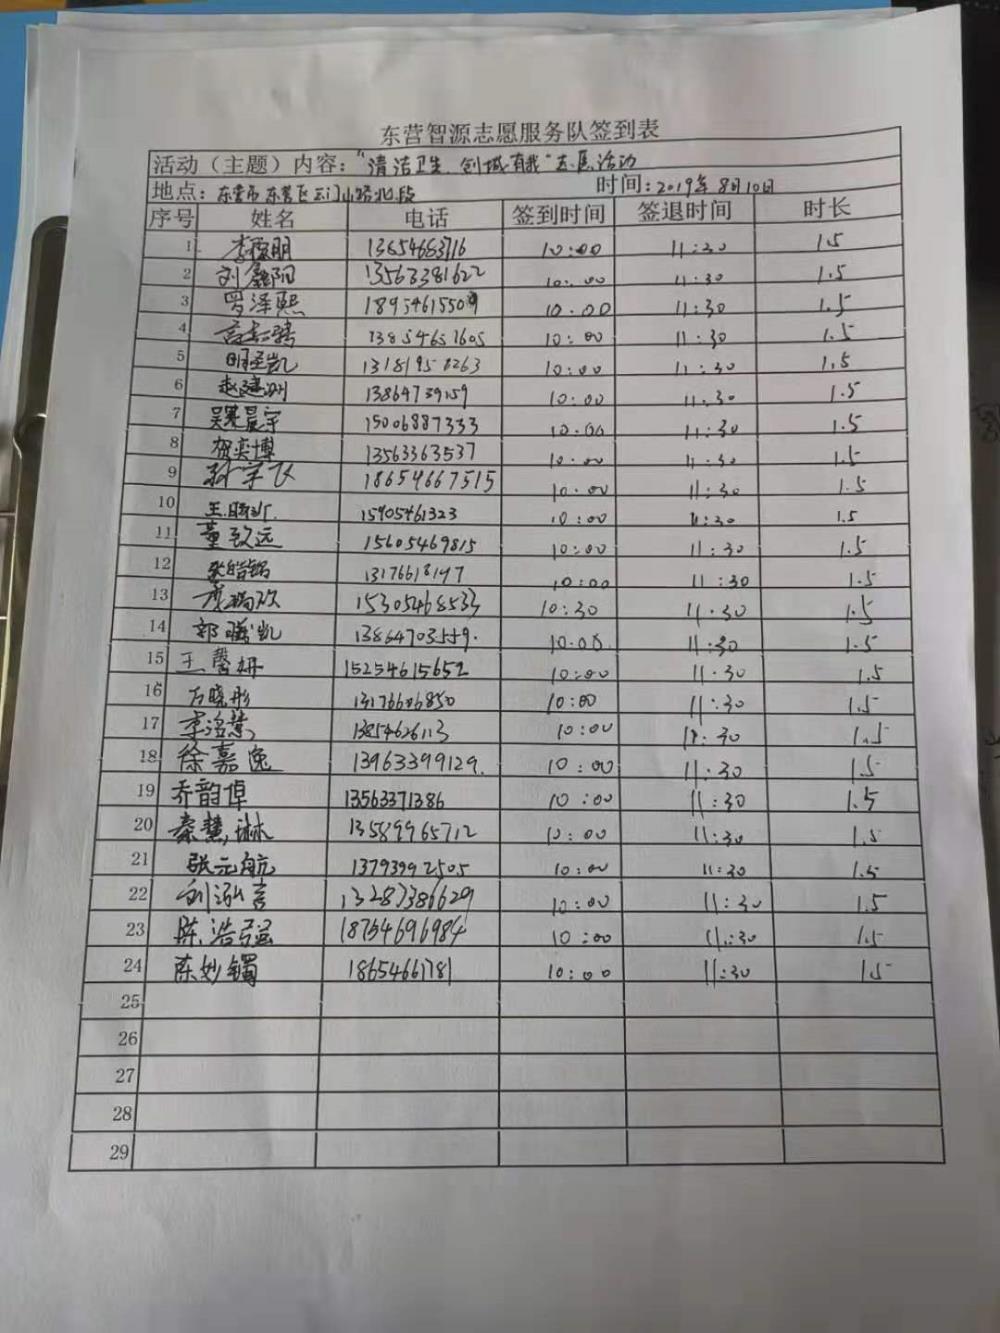 东营智源志愿服务队签到表
活动（主题）内容："清洁卫生、创城有我"志愿活动
地点：东营市东营区云门山路北段 时间：2019年8月10日
序号 姓名 电话 签到时间 签退时间 时长
1 13654663716 10:00 11:30 1.5
2 刘鑫阳 13563381622 10:00 11:30 1.5
3 罗泽熙 18954615509 10:00 11:30 1.5
4 10:00 11:30 1.5
5 10:00 11:30 1.5
6 10:00 11:30 1.5
7 吴晨宇 15006887333 10:00 11:30 1.5
8 贺奕博 13563363537 10:00 11:30 1.5
9 孙宇飞 18654667515 10:00 11:30 1.5
10 15905461323 10:00 11:30 1.5
11 董致远 15605469815 10:00 11:30 1.5
12 10:00 11:30 1.5
13 15305468533 10:30 11:30 1.5
14 郭曦凯 10:00 11:30 1.5
15 王馨妍 15254615652 10:00 11:30 1.5
16 万晓彤 13176606850 10:00 11:30 1.5
17 10:00 11:30 1.5
18 徐嘉逸 13963399129 10:00 11:30 1.5
19 乔韵倬 13563371386 10:00 11:30 1.5
20 秦慧琳 13589965712 10:00 11:30 1.5
21 张元航 13793992505 10:00 11:30 1.5
22 13287386629 10:00 11:30 1.5
23 陈浩强 18754696984 10:00 11:30 1.5
24 陈妙镯 18654661781 10:00 11:30 1.5
25
26
27
28
29